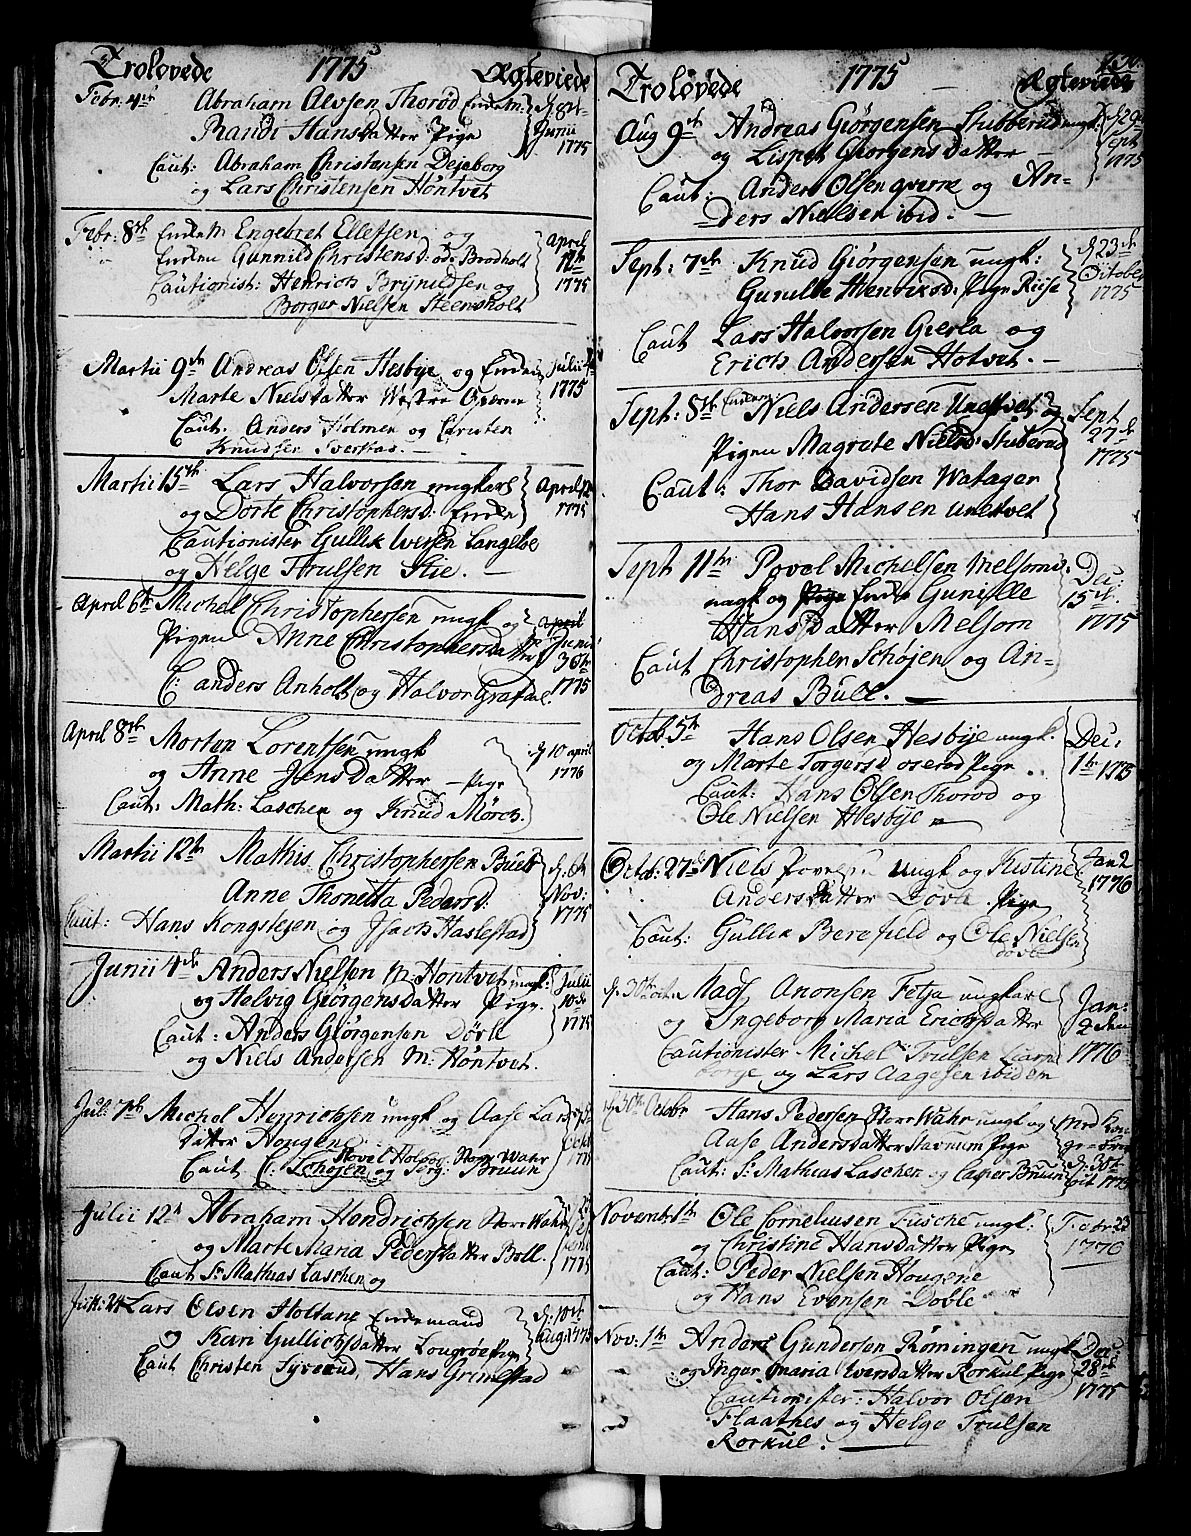 Trolovede 1775 Ægteviede
Febr. 4de Abraham Alvsen Thorød Enkem: d. 8de
Randi Hansdatter Pige Junii
1775
Caut: Abraham Christensen Dejeborg
og Lars Christensen Hontvet
Febr: 8de Enkem Engebret Ellefsen og April
Enken Gunnild Christensd: ode Brodholt 12te
Cautionist: Henrich Brynildsen og 1775
Borger Nielsen Steensholt
Martii 9de Andreas Olsen Hesbye og Enken Julii
Marte Nielsdatter Westre 1775
Caut. Anders Holmen og Christen
Knudsen Sverstad.
Martii 15de Lars Halvorsen ungkarl April 12
og Dorte Christophersd. Enken 1775
Cautionister Gullik Iversen Langelve
og Helge Trulsen Skie.
April 6te Michel Christophersen ungk og april
Pigen Anne Christophersdatter Junii
30te
C: anders Anholt og Halvor Grafdal. 1775
April 8de Morten Lorentsen ungk d. 10 april
og Anne Jensdatter Pige 1776
Caut: Math: Laschen og Knud Mørch.
Martii 12te Mathis Christophersen d. 6te
Anne Thonetta Pedersd: Nov:
Caut: Hans Kongstejen og Isach Haslestad 1775
Junii 4de Anders Nielsen M: Hontvet ungk: Julii
og Helvig Giørgensdatter Pige. 10de
Caut: Anders Giørgensen Døvle 1775
og Niels Andersen M: Hontvet.
Julii 7de Michel Henrichsen ungk og Aase Lars
datter Hougen
Povel Holvog: Norr Wahr
Caut C: Schøjen og Torg: Bruun 1775
Julii 12te Abraham Hendrichsen Norr Wahr
og Marte Maria Pedersdatter Boll.
Caut Sr Mathias Laschen og 1775
Julii: 24 Lars Olsen Holtane Enkemand d. 10de
og Kari Gullichsdatter Lougrøe Pige Aug: 1775
Caut Christen Tyvesund, Hans Grimestad
Troløvede 1775 Ægteviede
Aug 9de Andreas Giørgensen Stubberud ungk d 29de
og Lispet Giorgensdatter Sept
Caut: Anders Olsen qverne og An- 1775
ders Nielsen ibid:
Sept: 7de Knud Giørgensen ungk: d 23de
Gunille Henriksd: Pige Riise October
1775
Caut Lars Halvorsen Gierla og
Erich Andersen Hotvet.
Sept: 8de Enkem Niels Andersen Unelvet og Sept
Pigen Magrete Nielsd: Stuberud 27de
1775
Caut: Thor Davidsen Watager
Hans Hansen Unelvet
Sept 11te Povel Michelsen Melsom: Dec:
ungk og Pige Enke Gunille 15de
Hansdatter Melsom 1775
Caut Christopher Schøjen og An-
dreas Bull.
Octob. 5te Hans Olsen Hesbye ungk. Dec:
og Marte Torgersd oserød Pige 1te 1775
Caut: Hans Olsen Thorød og
Ole Nielsen Hesbye
Octob: 27de Niels ungk og Kirstine Jan 2
Andersdatter Døvle Pige 1776
Caut: Gullik Berefjeld og Ole Nielsen
døvle
d. 30te Octbr Mads Anonsen Fetja ungkarl Jan:
og Ingeborg Maria Erichsdatter 2den
Cautionister Michel Trulsen 1776
borge og Lars Aagesen ibidem
d 30te Octobr Hans Pedersen Norr Wahr ungk og med Kon-
Aase Andersdatter Stavnum Pige
Caut: Sr Mathias Laschen og Casper Bruun d. 30te
Oct. 1775
Novemb: 1te Ole Cornelusen Fusche ungk: Febr 23
og Christine Hansdatter Pige 1776
Caut: Peder Nielsen Hougene
og Hans Evensen Doble
Nov: 1te Anders Gundersen Romingen ungk Dec:
og Inger maria Iversdatter Rorkul Pige 28de
Cautionister: Halvor Olsen 1775
Flaathes og Helge Trulsen
Rorkul.